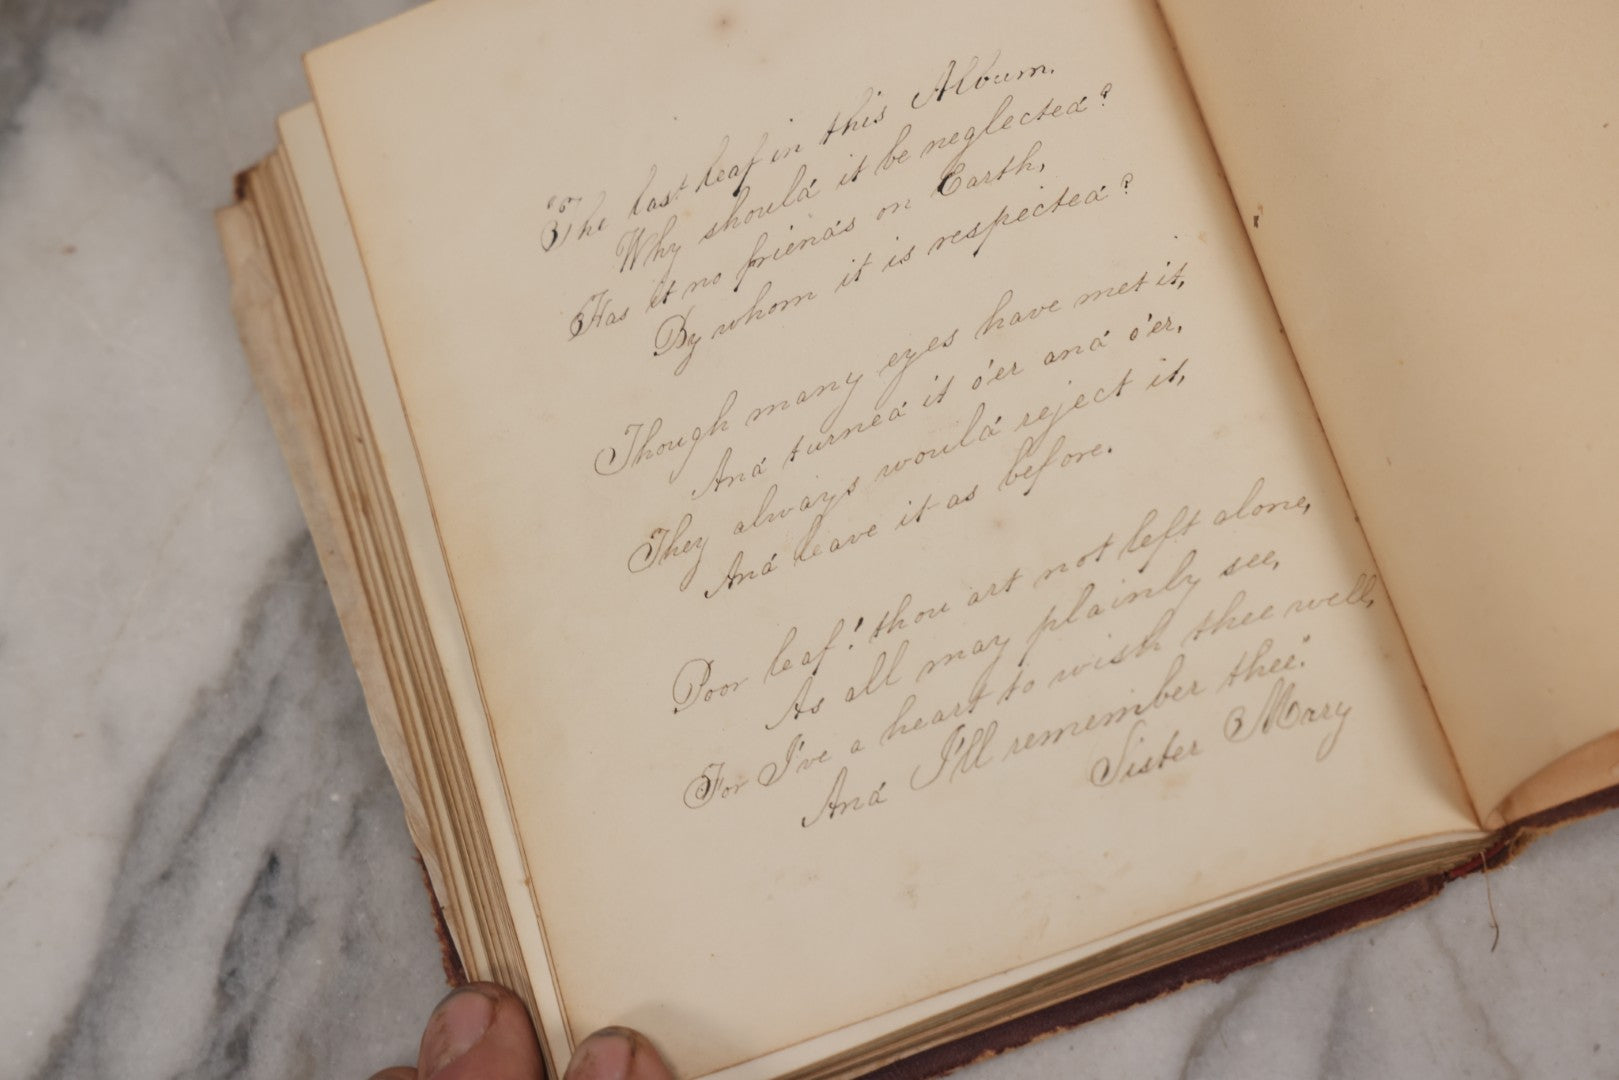 "The last leaf in this Album.
Why should it be neglected?
Has it no friends on Earth,
By whom it is respected?
Though many eyes have met it,
And turned it o'er and o'er,
They always would reject it,
And leave it as before.
Poor leaf! thou art not left alone,
As all may plainly see,
For I've a heart to wish thee well,
And I'll remember thee."
Sister Mary